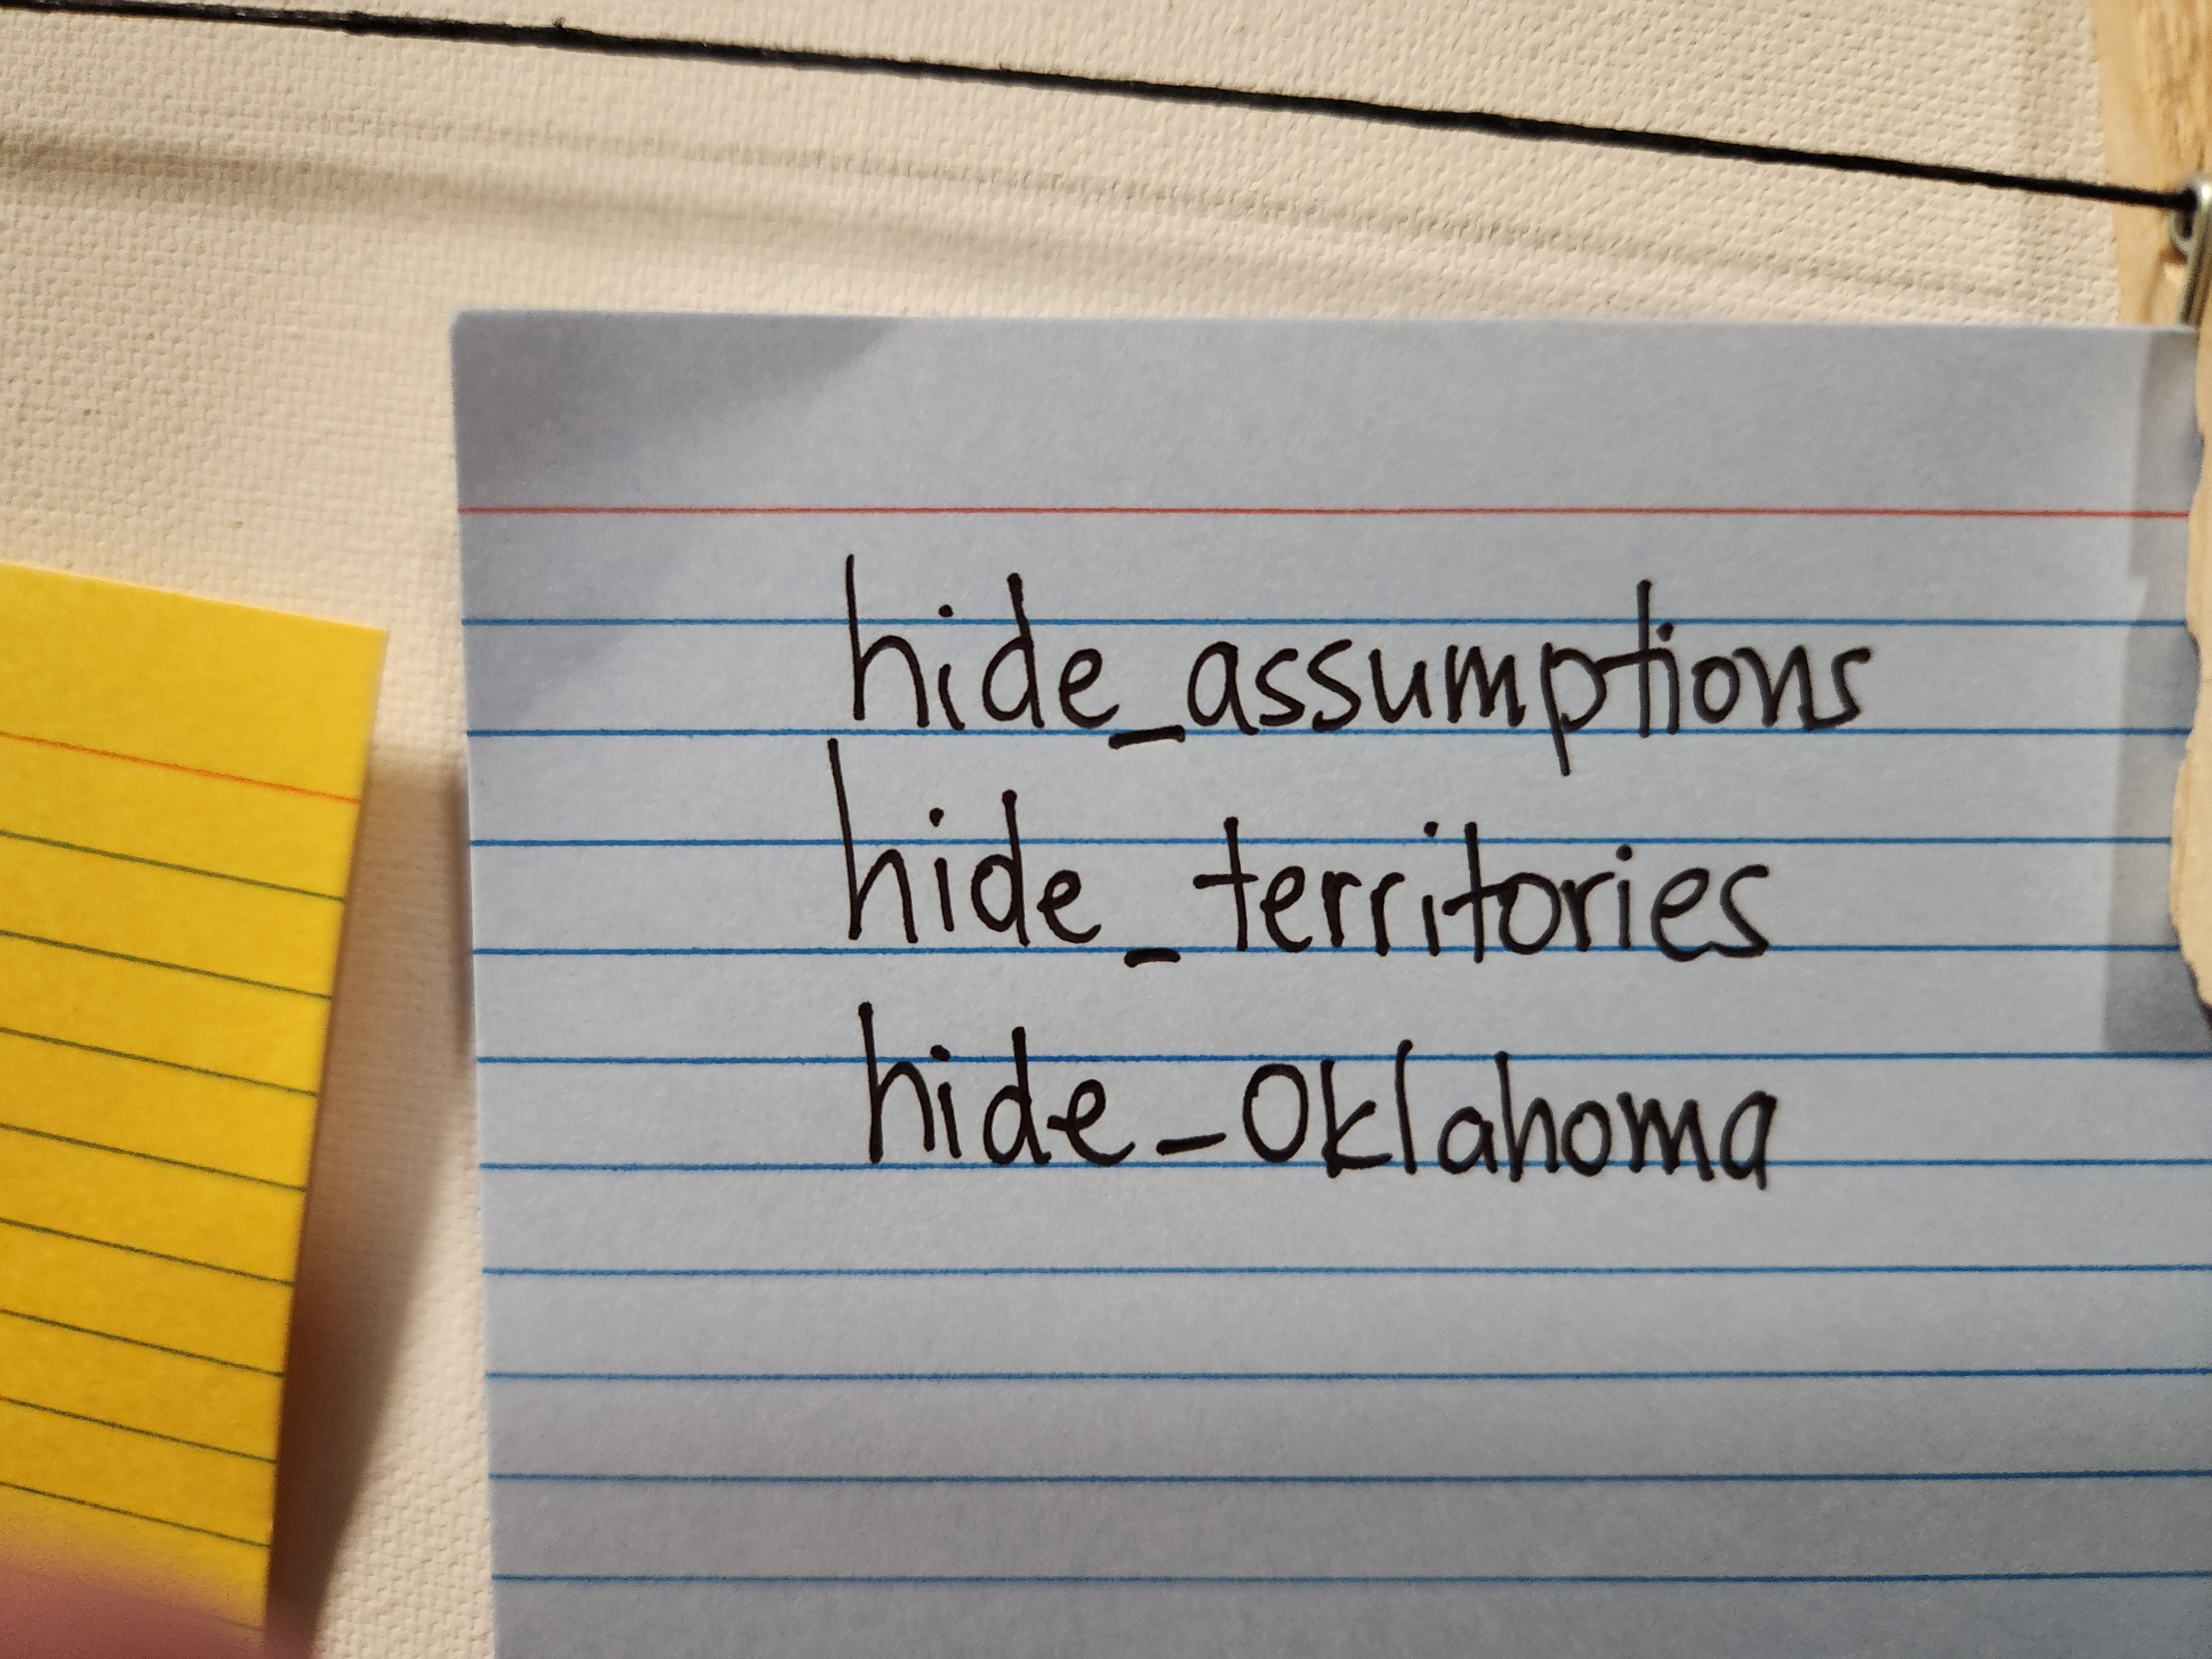 hide_assumptions
hide_territories
hide_Oklahoma